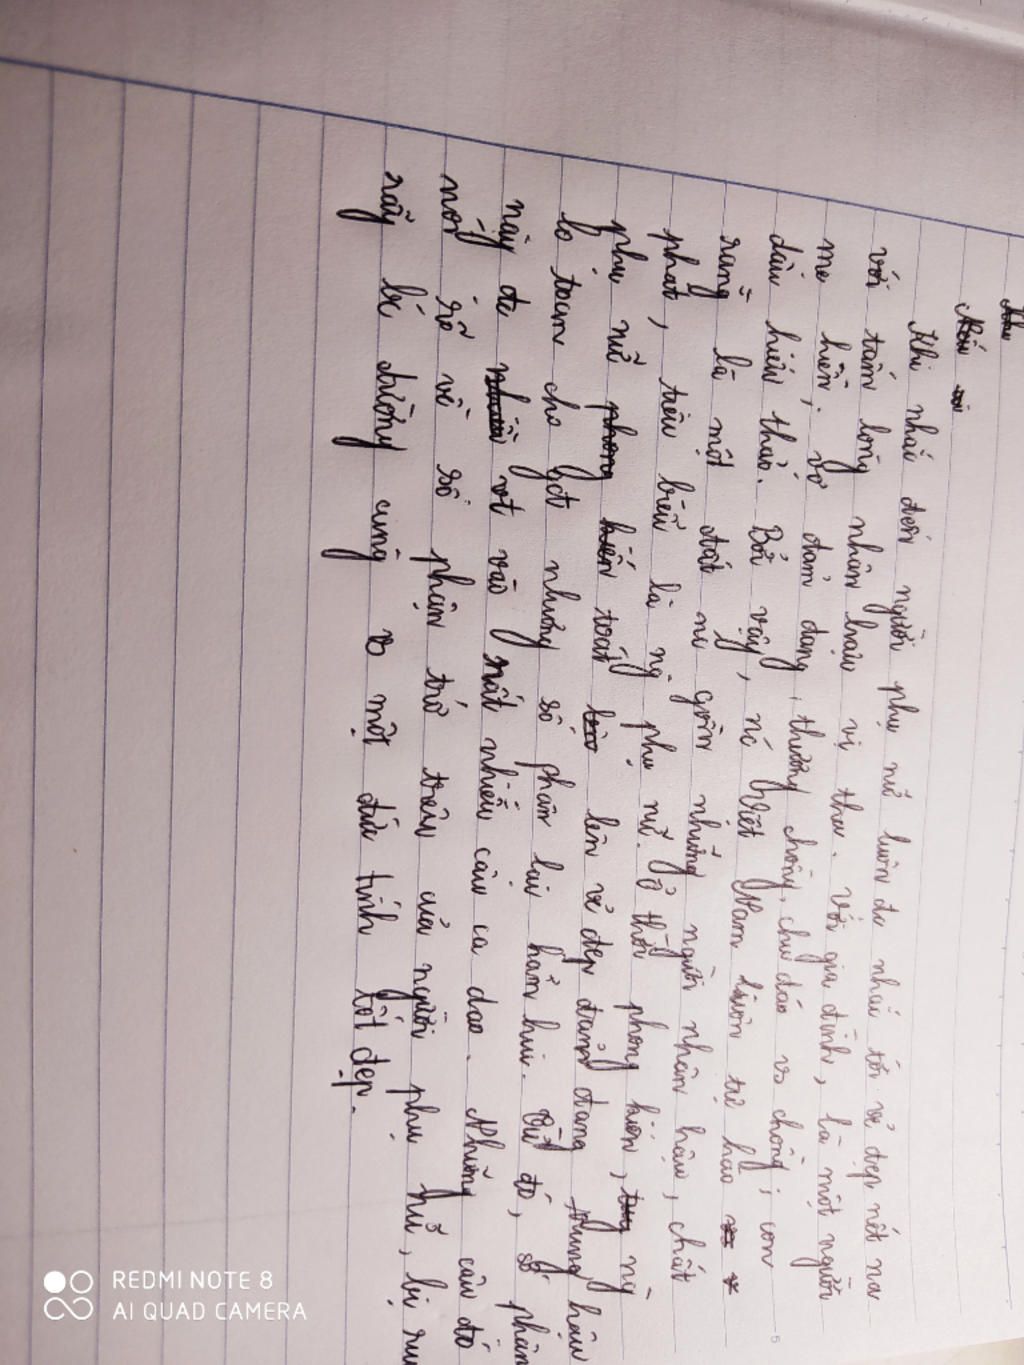 Khi nhắc đến người phụ nữ luôn đc nhắc tới vẻ đẹp nết na
với tấm lòng nhân hậu vị tha. Với gia đình, là một người
mẹ hiền, vợ đảm đang, thương chồng, chu đáo vs chồng; con
dâu hiếu thảo. Bởi vậy, nc Việt Nam luôn tự hào
rằng là một đất nc gồm những người nhân hậu, chất
phát, tiêu biểu là ng phụ nữ. Ở thời phong kiến, ng
phụ nữ toát lên vẻ đẹp đảm đang nhưng hậu
lo toan cho gđ nhưng số phận lại hẩm hui. Từ đó, số phận
này đc vt vào rất nhiều câu ca dao. Những câu đó
nói rõ về số phận trớ trêu của người phụ nữ, bị
rẫy bỏ đường cùng vs một đức tính tốt đẹp.
REDMI NOTE 8
AI QUAD CAMERA